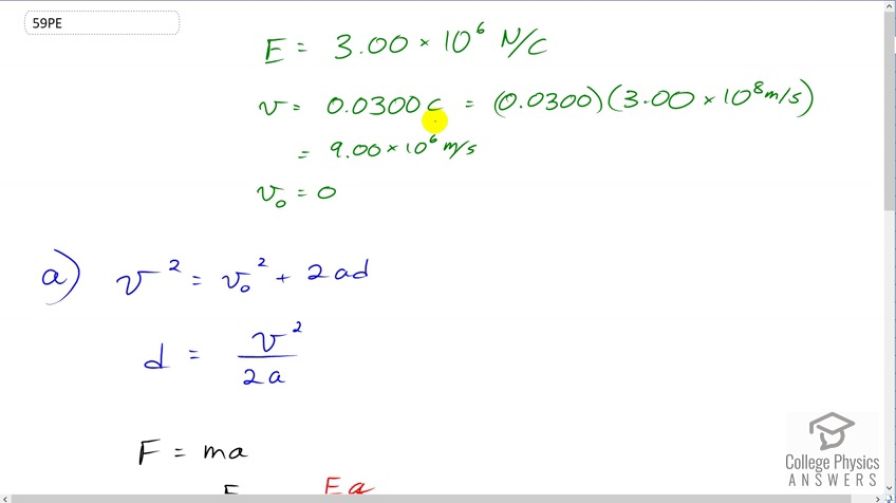 59PE
E = 3.00 × 10⁶ N/C
v = 0.0300 c = (0.0300)(3.00 × 10⁸ m/s)
= 9.00 × 10⁶ m/s
v₀ = 0
a) v² = v₀² + 2ad
d = v² / 2a
F = ma
College Physics
ANSWERS